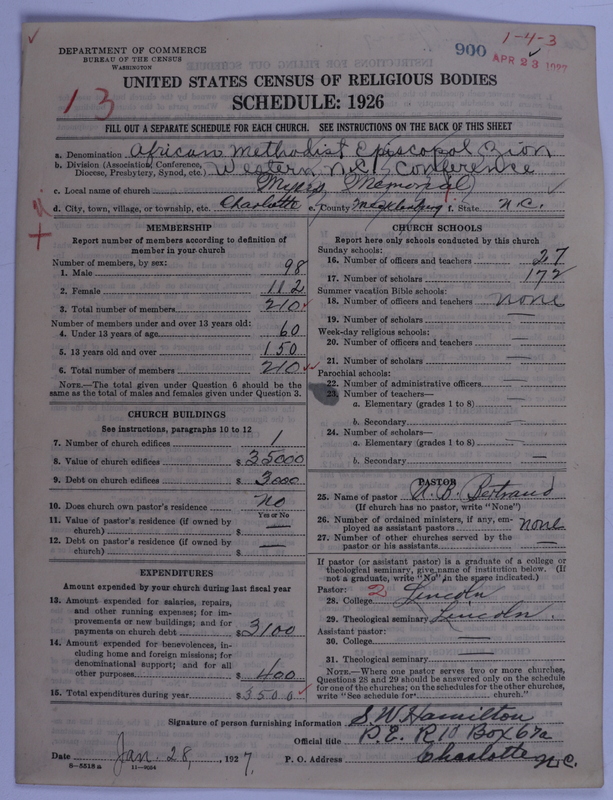 1-4-3
900 APR 23 1927
DEPARTMENT OF COMMERCE
BUREAU OF THE CENSUS
WASHINGTON
UNITED STATES CENSUS OF RELIGIOUS BODIES
13
SCHEDULE: 1926
FILL OUT A SEPARATE SCHEDULE FOR EACH CHURCH. SEE INSTRUCTIONS ON THE BACK OF THIS SHEET
a. Denomination African Methodist Episcopal Zion
b. Division (Association, Conference, Diocese, Presbytery, Synod, etc.) Western N.C. Conference
c. Local name of church Myers Memorial
d. City, town, village, or township, etc. Charlotte e. County Mecklenburg f. State N.C.
MEMBERSHIP
Report number of members according to definition of
member in your church
Number of members, by sex:
1. Male 98
2. Female 112
3. Total number of members 210
Number of members under and over 13 years old:
4. Under 13 years of age 60
5. 13 years old and over 150
6. Total number of members 210
NOTE.—The total given under Question 6 should be the
same as the total of males and females given under Question 3.
CHURCH BUILDINGS
See instructions, paragraphs 10 to 12
7. Number of church edifices 1
8. Value of church edifices $35000
9. Debt on church edifices $3000
10. Does church own pastor's residence no
Yes or No
11. Value of pastor's residence (if owned by
church) $ —
12. Debt on pastor's residence (if owned by
church) $ —
EXPENDITURES
Amount expended by your church during last fiscal year
13. Amount expended for salaries, repairs,
and other running expenses; for im-
provements or new buildings; and for
payments on church debt $3100
14. Amount expended for benevolences, in-
cluding home and foreign missions; for
denominational support; and for all
other purposes $400
15. Total expenditures during year $3500
CHURCH SCHOOLS
Report here only schools conducted by this church
Sunday schools:
16. Number of officers and teachers 27
17. Number of scholars 172
Summer vacation Bible schools:
18. Number of officers and teachers none
19. Number of scholars —
Week-day religious schools:
20. Number of officers and teachers —
21. Number of scholars —
Parochial schools:
22. Number of administrative officers —
23. Number of teachers—
a. Elementary (grades 1 to 8) —
b. Secondary —
24. Number of scholars—
a. Elementary (grades 1 to 8) —
b. Secondary —
PASTOR
25. Name of pastor Bertrand
(If church has no pastor, write "None")
26. Number of ordained ministers, if any, em-
ployed as assistant pastors none
27. Number of other churches served by the
pastor or his assistants
If pastor (or assistant pastor) is a graduate of a college or
theological seminary, give name of institution below. (If
not a graduate, write "No" in the space indicated.)
Pastor: 2
28. College Lincoln
29. Theological seminary Lincoln
Assistant pastor:
30. College —
31. Theological seminary —
NOTE.—Where one pastor serves two or more churches,
Questions 28 and 29 should be answered only on the schedule
for one of the churches; on the schedules for the other churches,
write "See schedule for church."
Signature of person furnishing information S. W. Hamilton
Official title P.E. R 10 Box 67a
Date Jan. 28, 1927. P. O. Address Charlotte N.C.
8-5518 a 11-9024